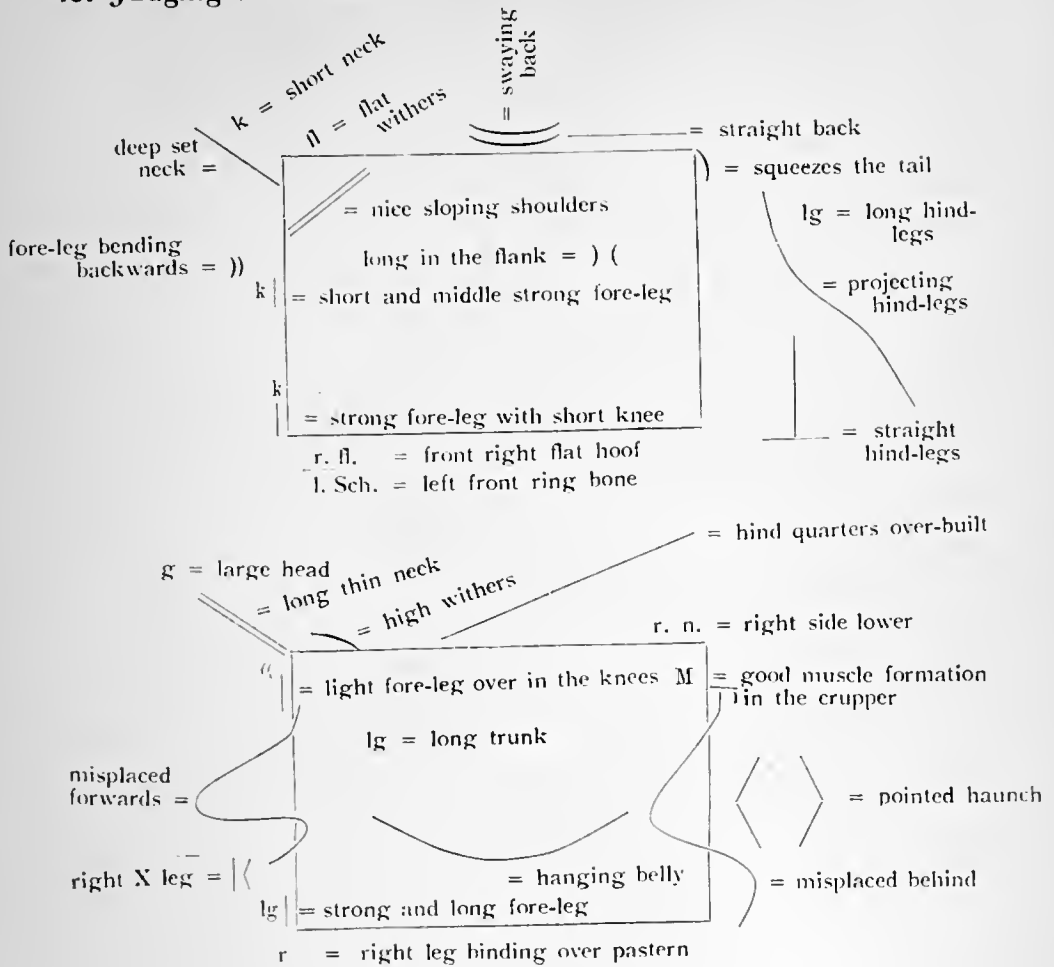 k = short neck
fl = flat
withers
= swaying
back
deep set
neck =
= straight back
) = squeezes the tail
= nice sloping shoulders
lg = long hind-
legs
fore-leg bending
backwards = ))
long in the flank = ) (
k | = short and middle strong fore-leg
= projecting
hind-legs
k
= strong fore-leg with short knee
= straight
hind-legs
r. fl. = front right flat hoof
l. Sch. = left front ring bone
= hind quarters over-built
g = large head
= long thin neck
= high withers
r. n. = right side lower
= light fore-leg over in the knees M
= good muscle formation
in the crupper
lg = long trunk
misplaced
forwards =
= pointed haunch
right X leg = |〈
= hanging belly
= misplaced behind
lg | = strong and long fore-leg
r = right leg binding over pastern